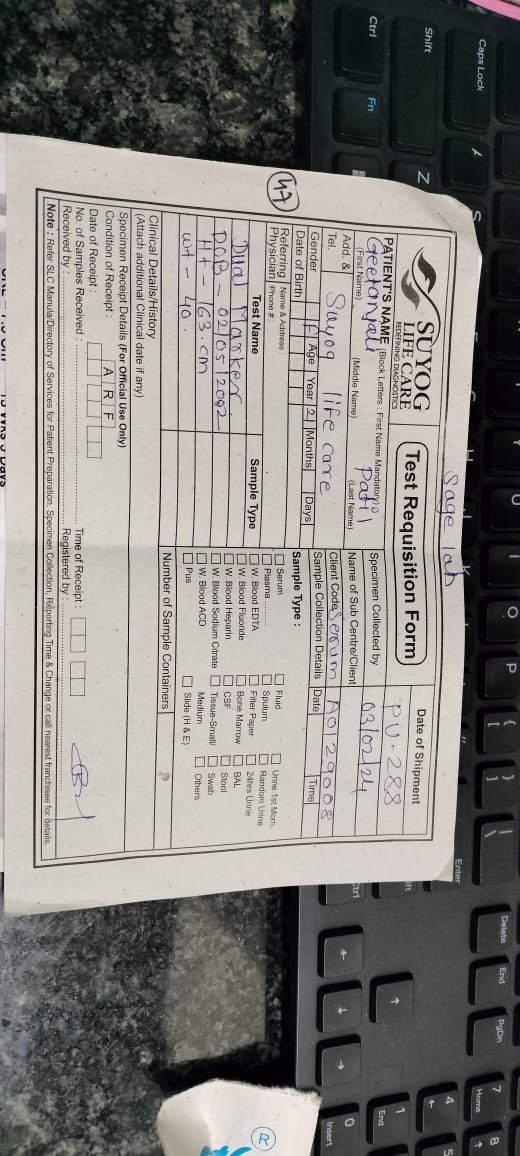 Sage lab
SUYOG
LIFE CARE
REDEFINING DIAGNOSTICS
Test Requisition Form
Date of Shipment
PU-288
PATIENT'S NAME (Block Letters : First Name Mandatory)
Geetanjali Patil
(First Name) (Middle Name) (Last Name)
Specimen Collected by
03/02/24
Add. &
Tel.
Suyog life care
Name of Sub Centre/Client
Client Code Serum A0129008
Gender F Age Year 21 Months Days
Sample Collection Details Date Time
Date of Birth
Referring Name & Address
Physician Phone #
47
Sample Type :
Serum Fluid Urine 1st Morn.
Plasma.......... Sputum Random Urine
W. Blood EDTA Filter Paper 24hrs Urine
W. Blood Fluoride Bone Marrow BAL
W. Blood Heparin CSF Stool
W. Blood Sodium Citrate Tissue-Small/ Swab
W. Blood ACD Medium Others
Pus Slide (H & E)
Test Name Sample Type
Dual Marker
DOB - 02/05/2002
Ht - 163.cm
wt - 40.
Number of Sample Containers
Clinical Details/History
(Attach additional Clinical date if any)
Specimen Receipt Details (For Official Use Only)
Condition of Receipt : A R F
Date of Receipt : Time of Receipt :
No. of Samples Received :
Received by : Registered by :
Note : Refer SLC Manula/Directory of Services for Patient Preparation, Specimen Collection, Reporting Time & Change or call nearest franchisee for details.
Caps Lock
Shift
Z
Ctrl
Fn
O
P
{
[
}
]
|
\
Enter
Delete
End
PgDn
7
Home
8
4
5
1
End
0
Insert
®